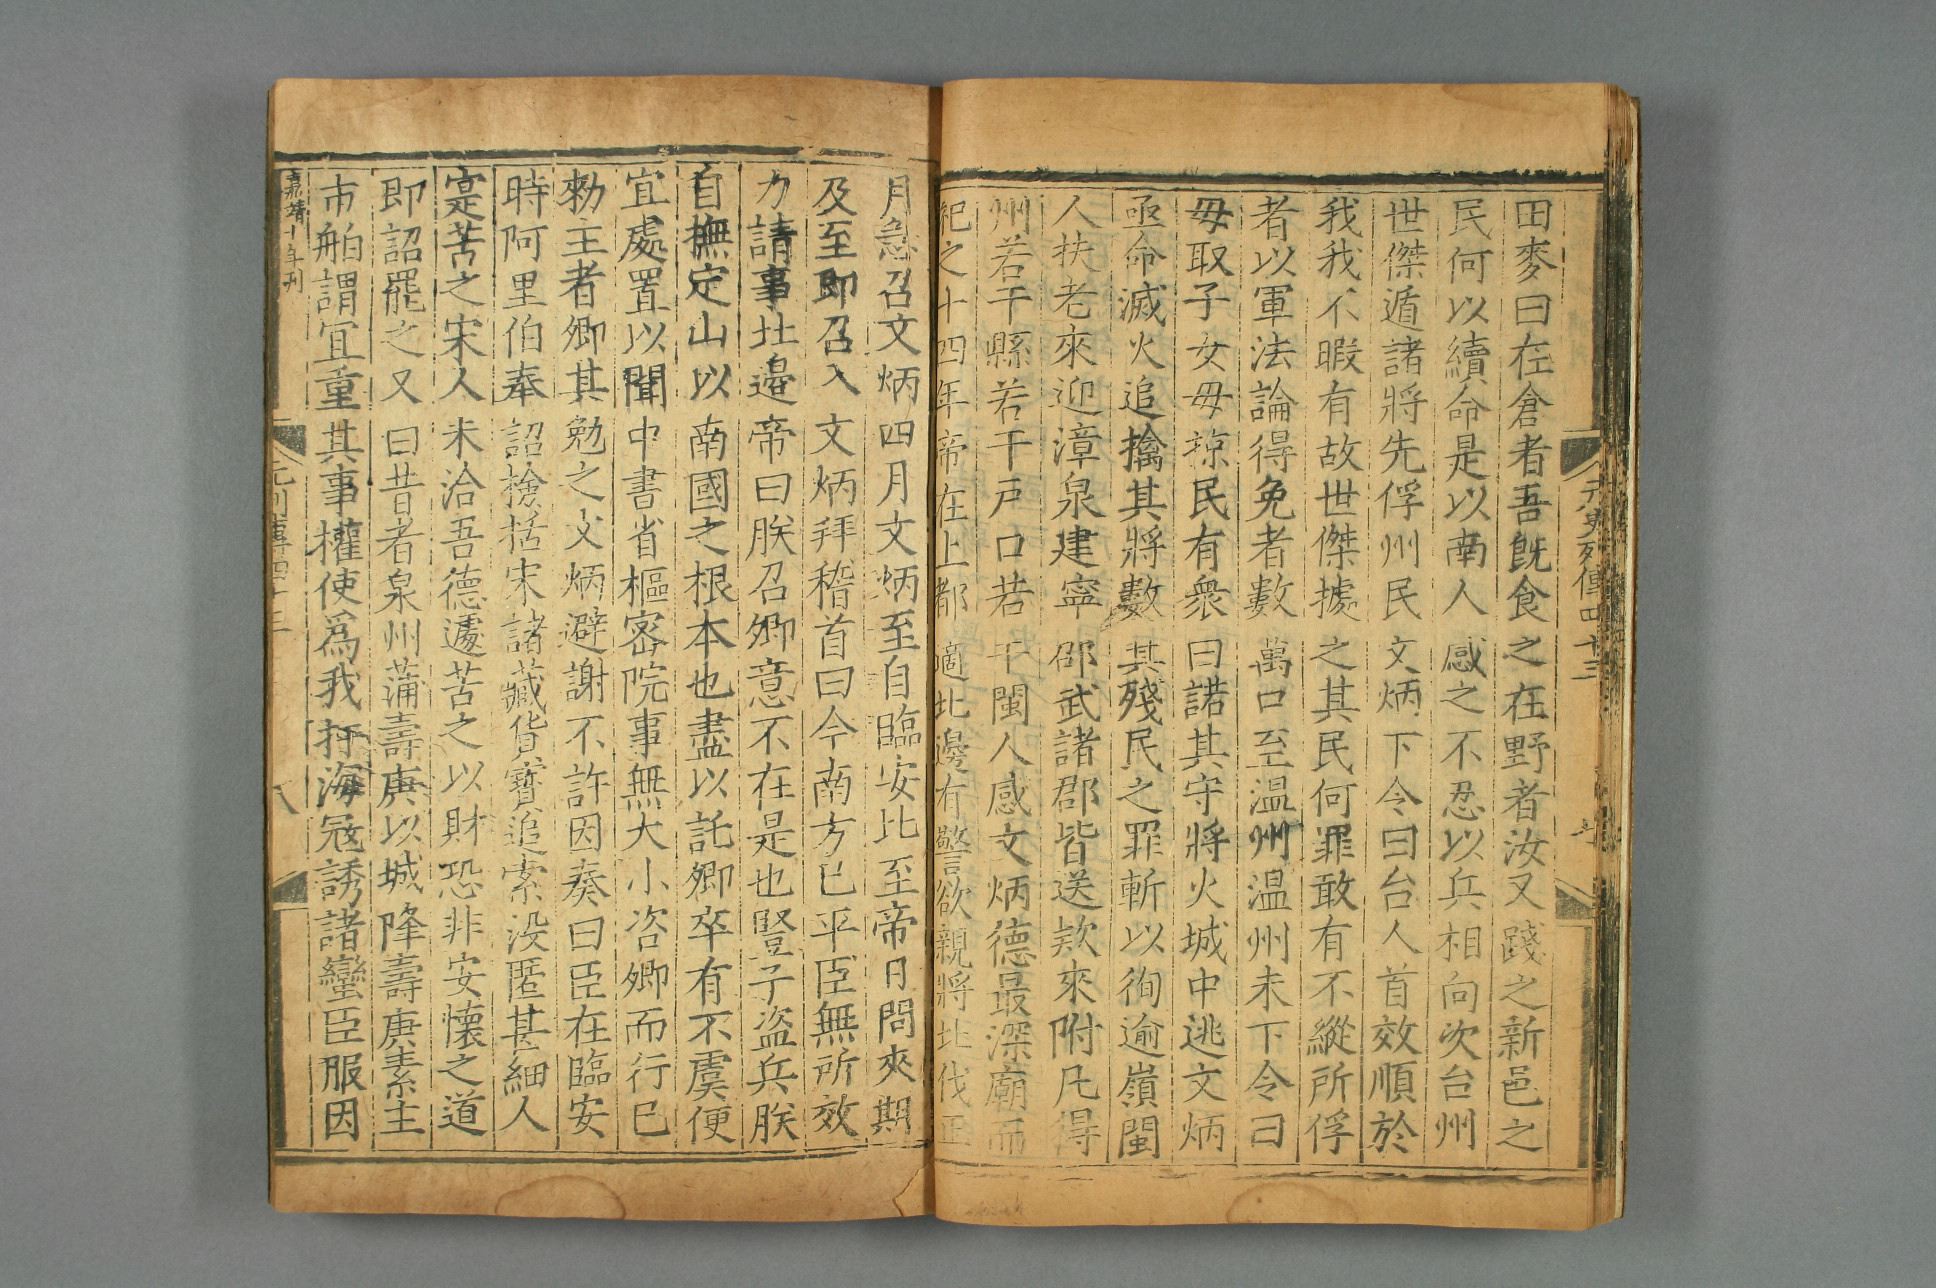 元史列傳四十三
田麥曰在倉者吾旣食之在野者汝又踐之新邑之
民何以續命是以南人感之不忍以兵相向次台州
世傑遁諸將先俘州民文炳下令曰台人首效順於
我我不暇有故世傑據之其民何罪敢有不縱所俘
者以軍法論得免者數萬口至温州温州未下令曰
毋取子女毋掠民有衆曰諾其守將火城中逃文炳
亟命滅火追擒其將數其殘民之罪斬以徇逾嶺閩
人扶老來迎漳泉建寧邵武諸郡皆送欵來附凡得
州若干縣若干戸口若干閩人感文炳德最深廟而
祀之十四年帝在上都適北邊有警欲親將北伐正
月急召文炳四月文炳至自臨安比至帝日問來期
及至即召入文炳拜稽首曰今南方已平臣無所效
力請事北邊帝曰朕召卿意不在是也豎子盗兵朕
自撫定山以南國之根本也盡以託卿卒有不虞便
宜處置以聞中書省樞密院事無大小咨卿而行已
勑主者卿其勉之文炳避謝不許因奏曰臣在臨安
時阿里伯奉詔檢括宋諸藏貨寶追索没匿甚細人
寔苦之宋人未洽吾德遽苦之以財恐非安懷之道
即詔罷之又曰昔者泉州蒲壽庚以城降壽庚素主
市舶謂宜重其事權使爲我扞海冦誘諸蠻臣服因
嘉靖十年刋
元列傳四十三
八